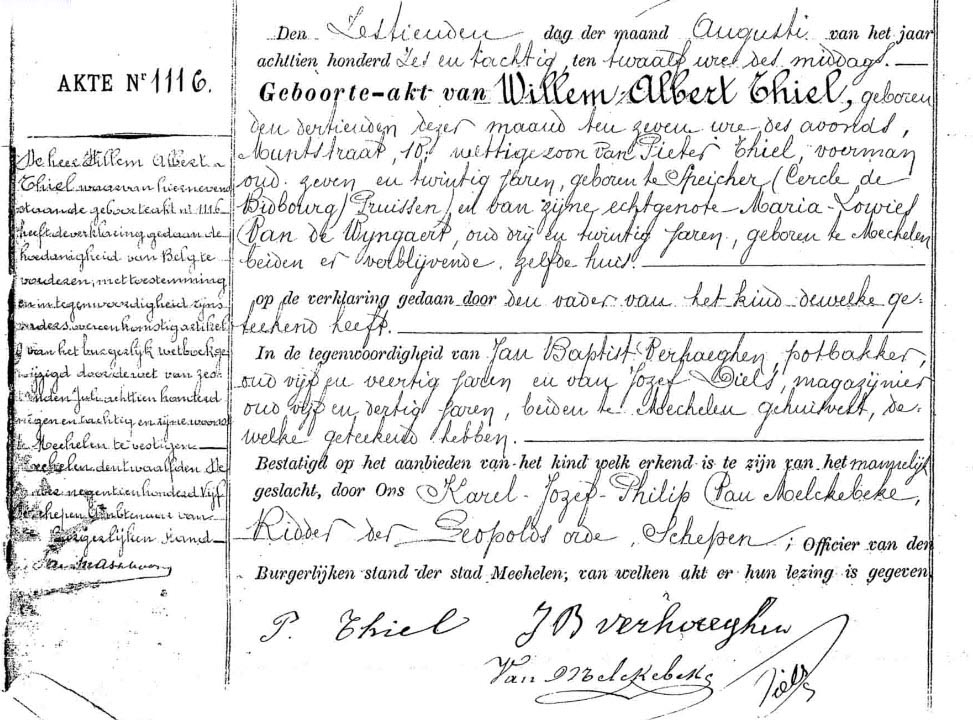 AKTE Nr 1116.
De heer Willem Albert
Thiel waarvan hiernevens
staande geboorteakt nr 1116
heeft de verklaring gedaan de
hoedanigheid van Belg te
, met toestemming
en in tegenwoordigheid zijns
vaders, overeenkomstig artikel
9 van het burgerlijk wetboek ge-
wijzigd door de wet van zes-
tienden Juli achttien honderd
negen en tachtig en zijne woonst
te Mechelen te vestigen
Mechelen den twaalfden De-
negentienhonderd Vijf
Schepen Ambtenaar van
Burgerlijken Stand
Den Zestienden dag der maand Augusti van het jaar
achttien honderd Zes en tachtig, ten twaalf ure des middags.
Geboorte-akt van Willem-Albert Thiel, geboren
den dertienden dezer maand ten zeven ure des avonds,
Muntstraat, 10; wettige zoon van Pieter Thiel, voerman
oud zeven en twintig jaren, geboren te Speicher (Cercle de
Bidbourg) Pruissen) en van zijne echtgenote Maria-Lowies
Van de Wyngaert, oud drij en twintig jaren, geboren te Mechelen
beiden er verblijvende zelfde huis.
op de verklaring gedaan door den vader van het kind dewelke ge-
teekend heeft.
In de tegenwoordigheid van Jan Baptist Verhaeghen, potbakker,
oud vijf en veertig jaren en van Jozef Diels, magazijnier
oud vijf en dertig jaren, beiden te Mechelen gehuisvest, de-
welke geteekend hebben.
Bestatigd op het aanbieden van het kind welk erkend is te zijn van het mannelijk
geslacht, door Ons Karel-Jozef-Philip Van Melckebeke,
Ridder der Leopolds orde, Schepen; Officier van den
Burgerlijken stand der stad Mechelen; van welken akt er hun lezing is gegeven
P. Thiel
J B verhaeghen
Van Melckebeke
Diels